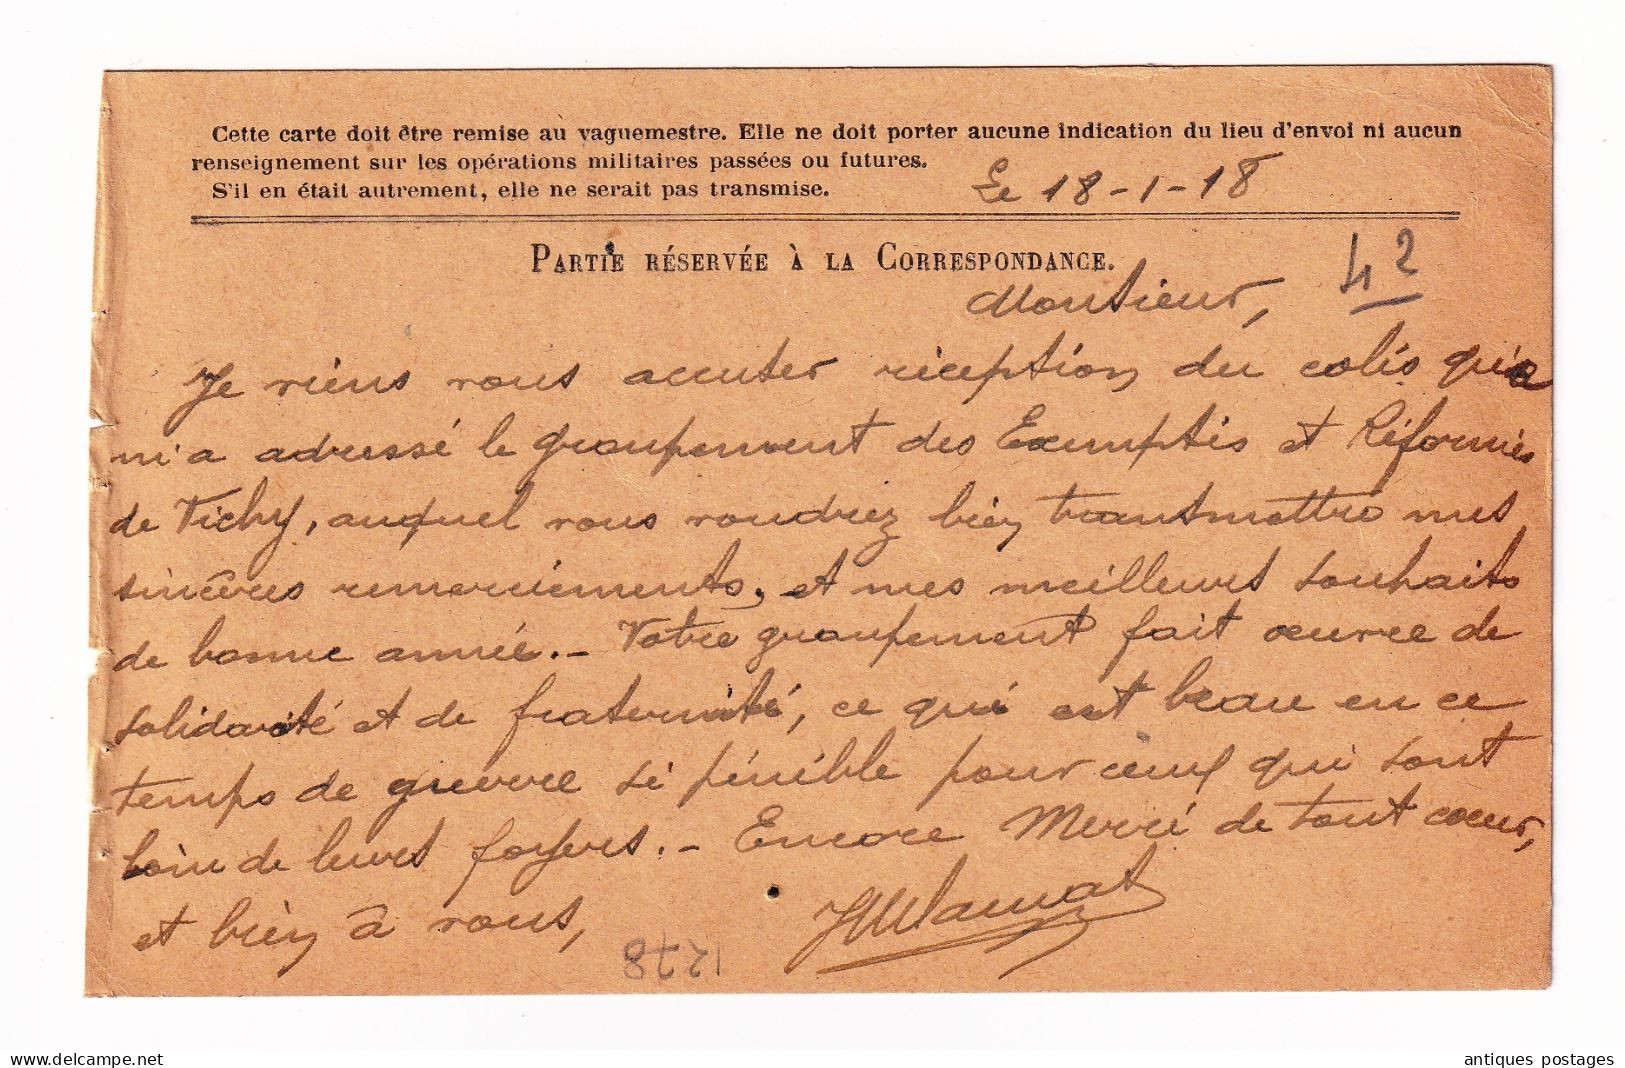 Cette carte doit être remise au vaguemestre. Elle ne doit porter aucune indication du lieu d'envoi ni aucun
renseignement sur les opérations militaires passées ou futures.
S'il en était autrement, elle ne serait pas transmise.
Le 18-1-18
PARTIE RÉSERVÉE À LA CORRESPONDANCE.
42
Monsieur,
Je viens vous accuser réception du colis qu'a
m'a adressé le groupement des Exemptés et Réformés
de Vichy, auquel vous voudrez bien transmettre mes
sincères remerciements, et mes meilleurs souhaits
de bonne année. – Votre groupement fait œuvre de
solidarité et de fraternité, ce qui est beau en ce
temps de guerre si pénible pour ceux qui sont
loin de leurs foyers. – Encore Merci de tout cœur,
et bien à vous,
1278
delcampe.net
antiques postages